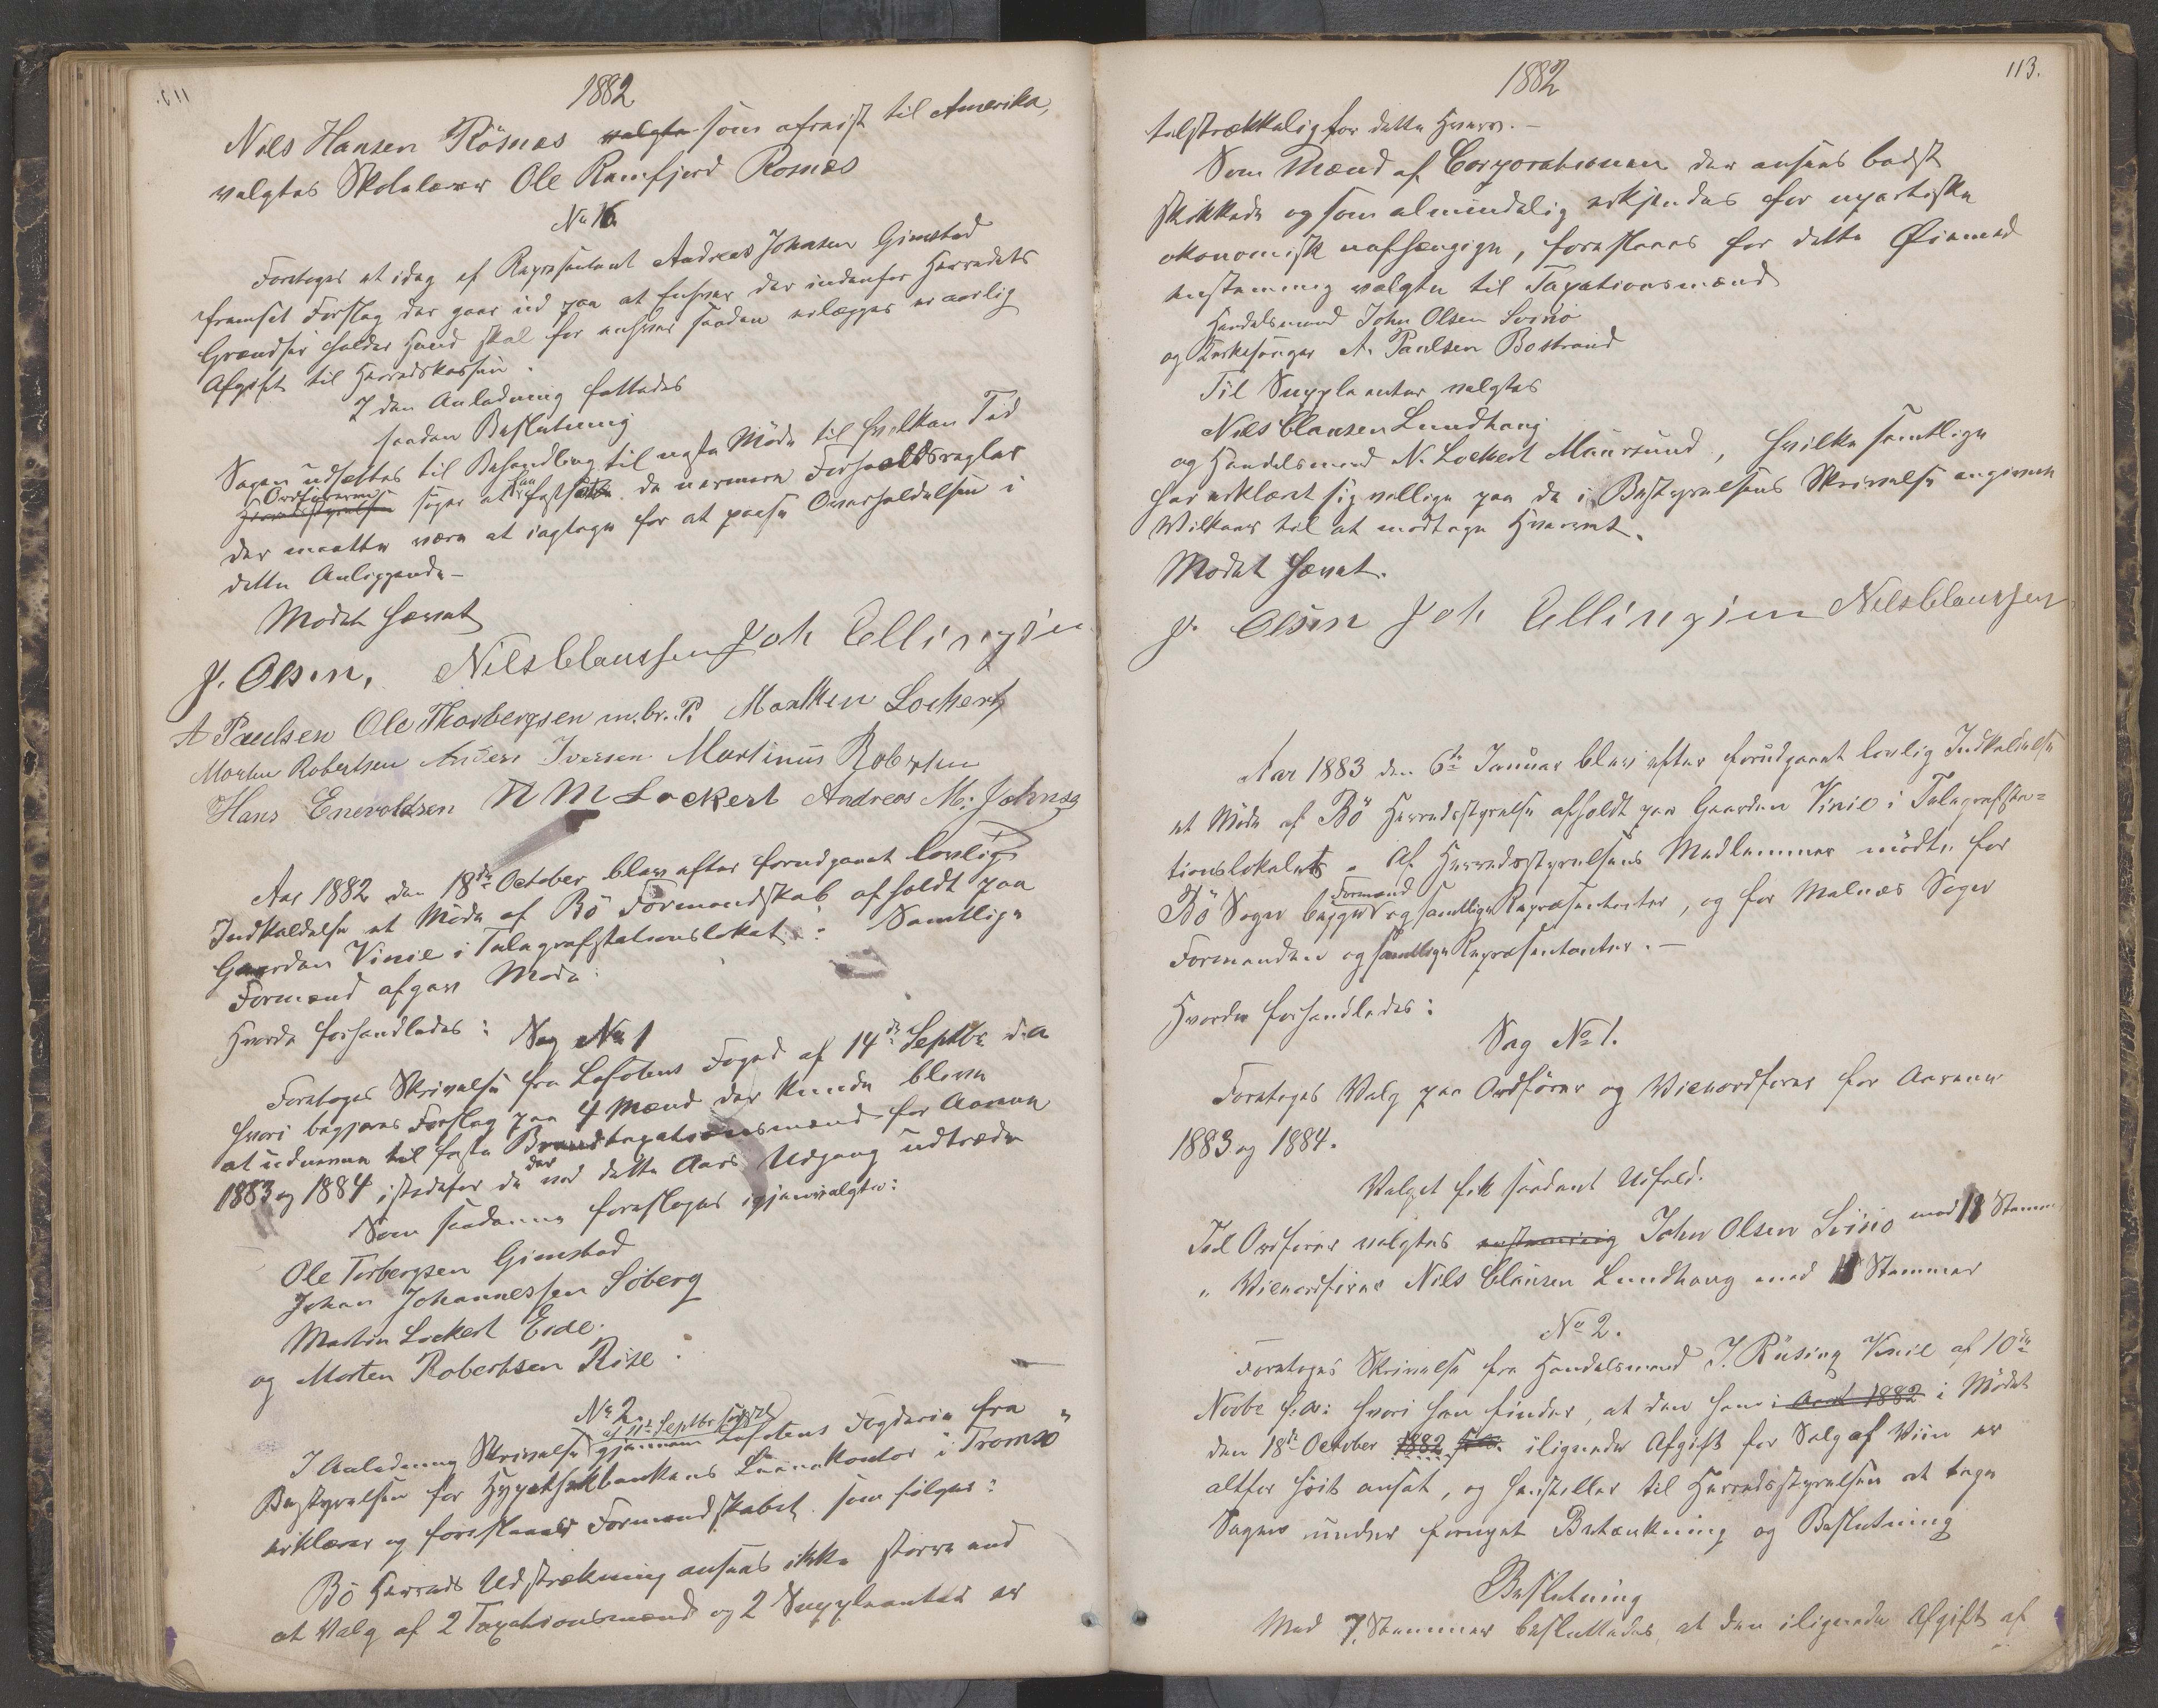 1882
Nils Hansen Rösnæs valgte som afreist til Amerika,
valgtes Skolelærer Ole Ramfjord Rosnæs
No 16
Foretoges et idag af Repræsentant Andreas Johnsen Gimstad
fremsat Forslag der gaar ud paa at Enhver der indenfor Herredets
Grændser holder Hund skal for enhver saadan erlægge en aarlig
Afgift til Herredskassen.
I den Anledning fattedes
saadan Beslutning
Sagen udsættes til Behandling til neste Möde til hvilken Tid
Ordføreren
Herredsstyrelsen søger at faa fastsatte de nærmere Forholdsregler
der maatte være at iagttage for at paase Overholdelsen i
dette Anliggende –
Mødet hævet
J. Olsen, Nils Claussen Joh Ellingsen
A Paulsen Ole Thorbergsen m. br. P. Marthin Lockert
Morten Robertsen Anders Iversen Martinus Robertsen
Hans Enevoldsen N M Lockert Andreas M. Johnsen
Aar 1882 den 18de October blev efter forudgaaet lovlig
Indkaldelse et Möde af Bö Formandskab afholdt paa
Gaarden Vinie i Telegrafstationslokalet: Samtlige
Formænd afgav Møde:
Hvorda forhandledes: Sag No 1
Foretoges Skrivelse fra Lofotens Foged af 14de Septbr d. a
hvori begjæres Forslag paa 4 Mænd der kunde blive
at udnævne til faste Brandtaxationsmænd for Aarene
1883 og 1884 istedefor de der ved dette Aars Udgang udtræde
Som saadanne foresloges igjenvalgte:
Ole Torbergsen Gimstad
Johan Johannessen Söberg
Martin Lockert Eide.
og Morten Robertsen Rise.
No 2
af 11te Septbr sidstl
I Anledning Skrivelse gjennem Lofotens Fogderie fra
Bestyrelsen for Hypothekbankens Laanekontor i Tromsø
erklærer og foreslaaer Formandskabet som følger:
Bö Herreds Udstrækning ansees ikke større end
at Valg af 2 Taxationsmænd og 2 Suppleanter er
113.
1882
tilstrækkelig for dette Hverv. –
Som Mænd af Corporationen der ansees bedst
skikkede og som almindelig erkjendes for upartiske
økonomisk uafhængige, foreslaaes for dette Øiemed
enstemmig valgte til Taxationsmænd
Handelsmand John Olsen Svinø
og Kirkesanger A. Paulsen Bøstrand
Til Suppleanter valgtes
Nils Clausen Lundhaug
og Handelsmand N. Lockert Maursund, hvilke samtlige
har erklæret sig villige paa de i Bestyrelsens Skrivelse angivne
Vilkaar til at modtage Hvervet.
Mødet hævet.
J. Olsen Joh Ellingsen Nils Claussen
Aar 1883 den 6te Januar blev efter forudgaaet lovlig Indkaldelse
et Möde af Bö Herredsstyrelse afholdt paa Gaarden Vinie i Telegrafsta=
tionslokalet. Af Herredsstyrelsens Medlemmer mödte for
Bö Sogn begge Formænd og samtlige Repræsentanter, og for Malnæs Sogn
Formændene og samtlige Repræsentanter. –
Hvorda forhandledes:
Sag No 1.
Foretoges Valg paa Ordförer og Viceordförer for Aarene
1883 og 1884.
Valget fik saadant Udfald.
Til Ordfører valgtes enstemmig John Olsen Svinø med 11 Stemmer
" Viceordförer Nils Clausen Lundhaug med Stemmer
No 2.
Foretoges Skrivelse fra Handelsmand J. Rüsing Vinie af 10de
Novbr f. a: hvori han finder, at den ham i Aaret 1882 i Mödet
den 18de October 1882 f. a. ilignede Afgift for Salg af Viin er
altfor höit ansat, og henstiller til Herredsstyrelsen at tage
Sagen under fornyet Betænkning og Beslutning
Beslutning
Med 7 Stemmer besluttedes, at den ilignede Afgift af